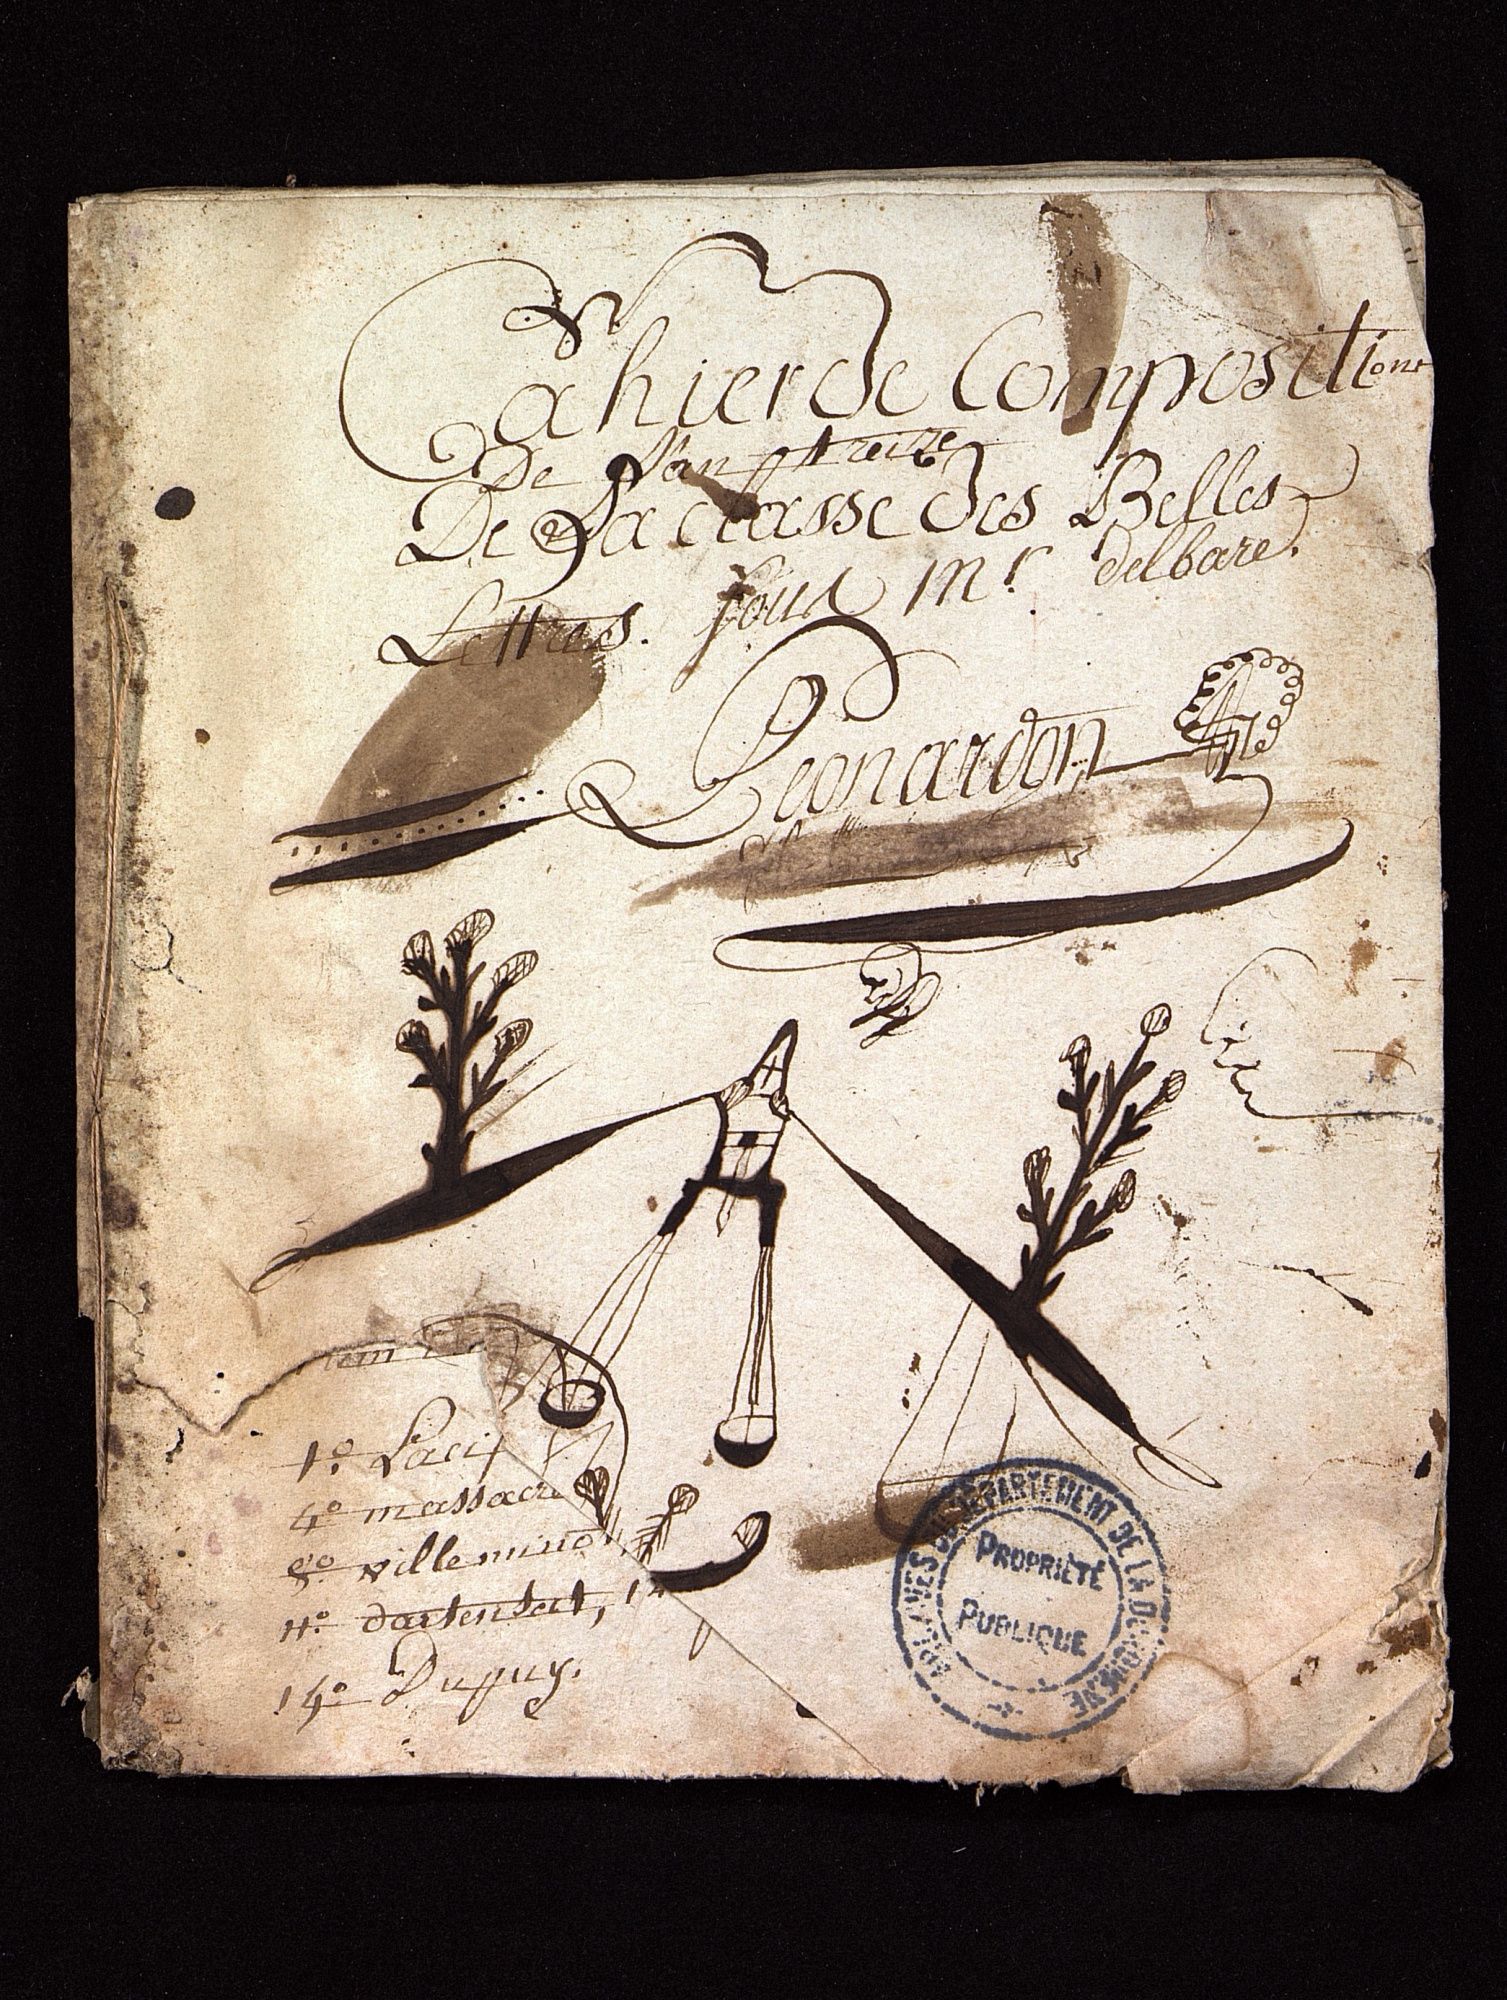 Cahier de Compositions
De l'an treize
De La classe des Belles
Lettres. sous Mr. delbare.
Leonardon
1o. Laci
4o massacre
8o villemin
11o dartensat,
14o Dupuy.
ARCHIVES DU DÉPARTEMENT DE LA DORDOGNE
PROPRIÉTÉ
PUBLIQUE